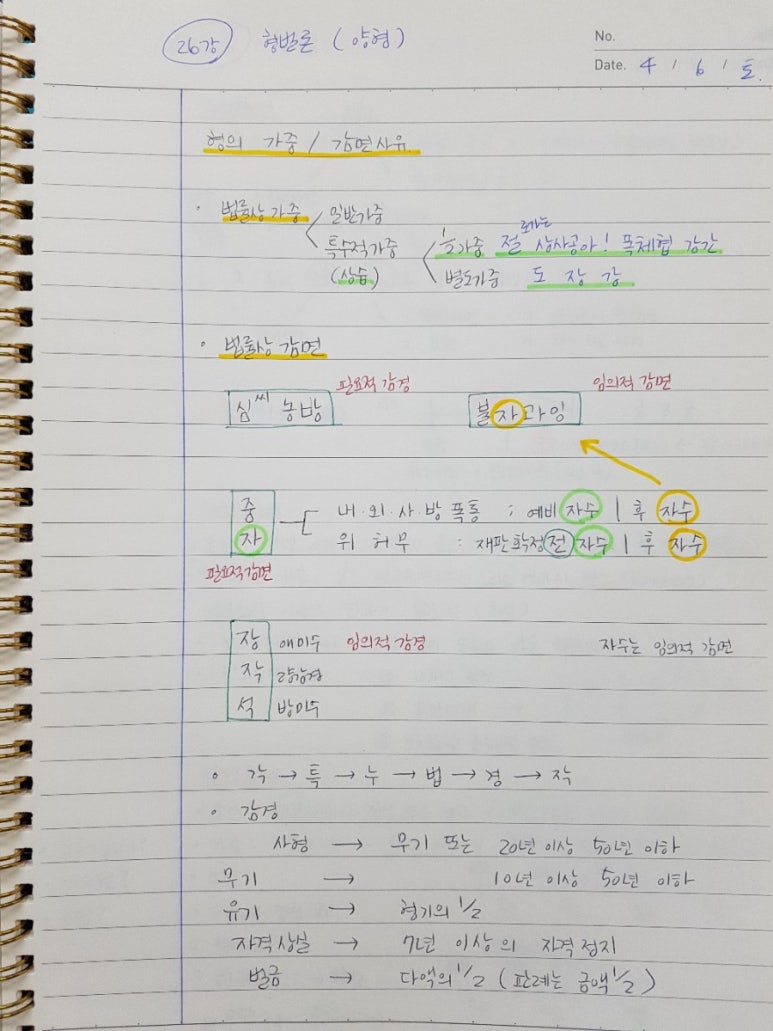 26강 형벌론 (양형)
No.
Date. 4 / 6 / 토.
형의 가중 / 감면사유
· 법률상 가중 일반가중
특수적가중 (상습)
½가중 절 로는 상사공아! 폭체협 강간
별도가중 도 장 강
· 법률상 감면
심씨 농방 필요적 감경 불자과잉 임의적 감면
중 내·외·사·방 폭통 ; 예비 자수 | 후 자수
자 위 허 무 : 재판확정 전 자수 | 후 자수
필요적감면
장 애미수 임의적 감경 자수는 임의적 감면
작 량감경
석 방미수
· 각 → 특 → 누 → 법 → 경 → 작
· 감경
사형 → 무기 또는 20년 이상 50년 이하
무기 → 10년 이상 50년 이하
유기 → 형기의 1/2
자격상실 → 7년 이상의 자격정지
벌금 → 다액의 1/2 (판례는 금액 1/2)